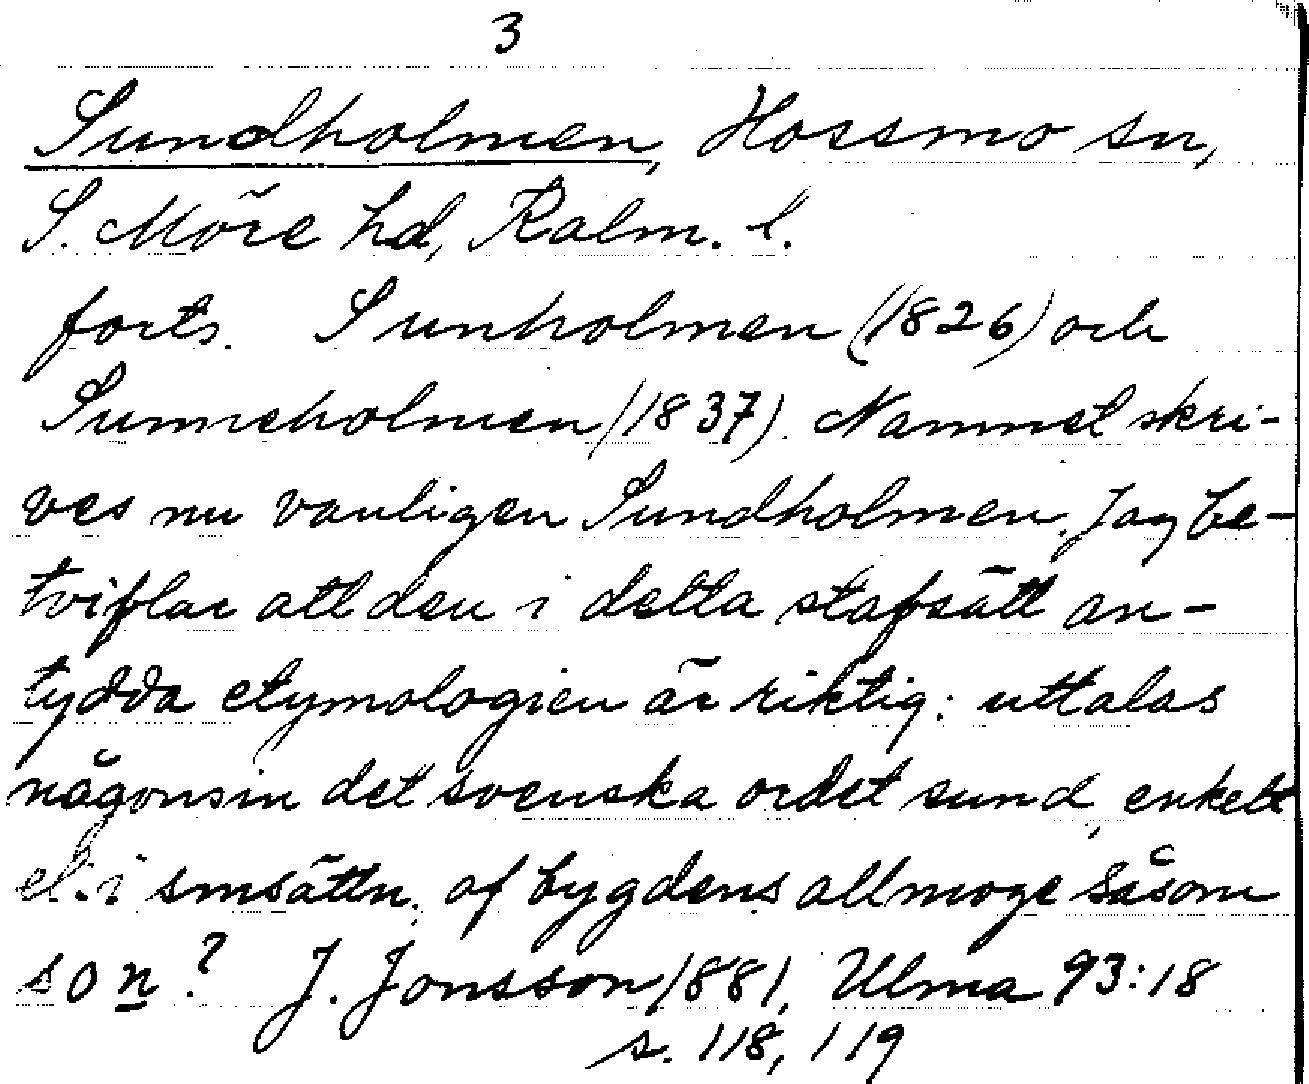 3
Sundholmen, Hossmo sn,
S. Möre hd, Kalm. l.
forts. Sunholmen (1826) och
Sunneholmen (1837). Namnet skri-
ves nu vanligen Sundholmen. Jag be-
tviflar att den i detta stafsätt an-
tydda etymologien är riktig: uttalas
någonsin det svenska ordet sund, enkelt
el. i smsättn. af bygdens allmoge såsom
son? J. Jonsson 1881, Ulma 93:18
s. 118, 119